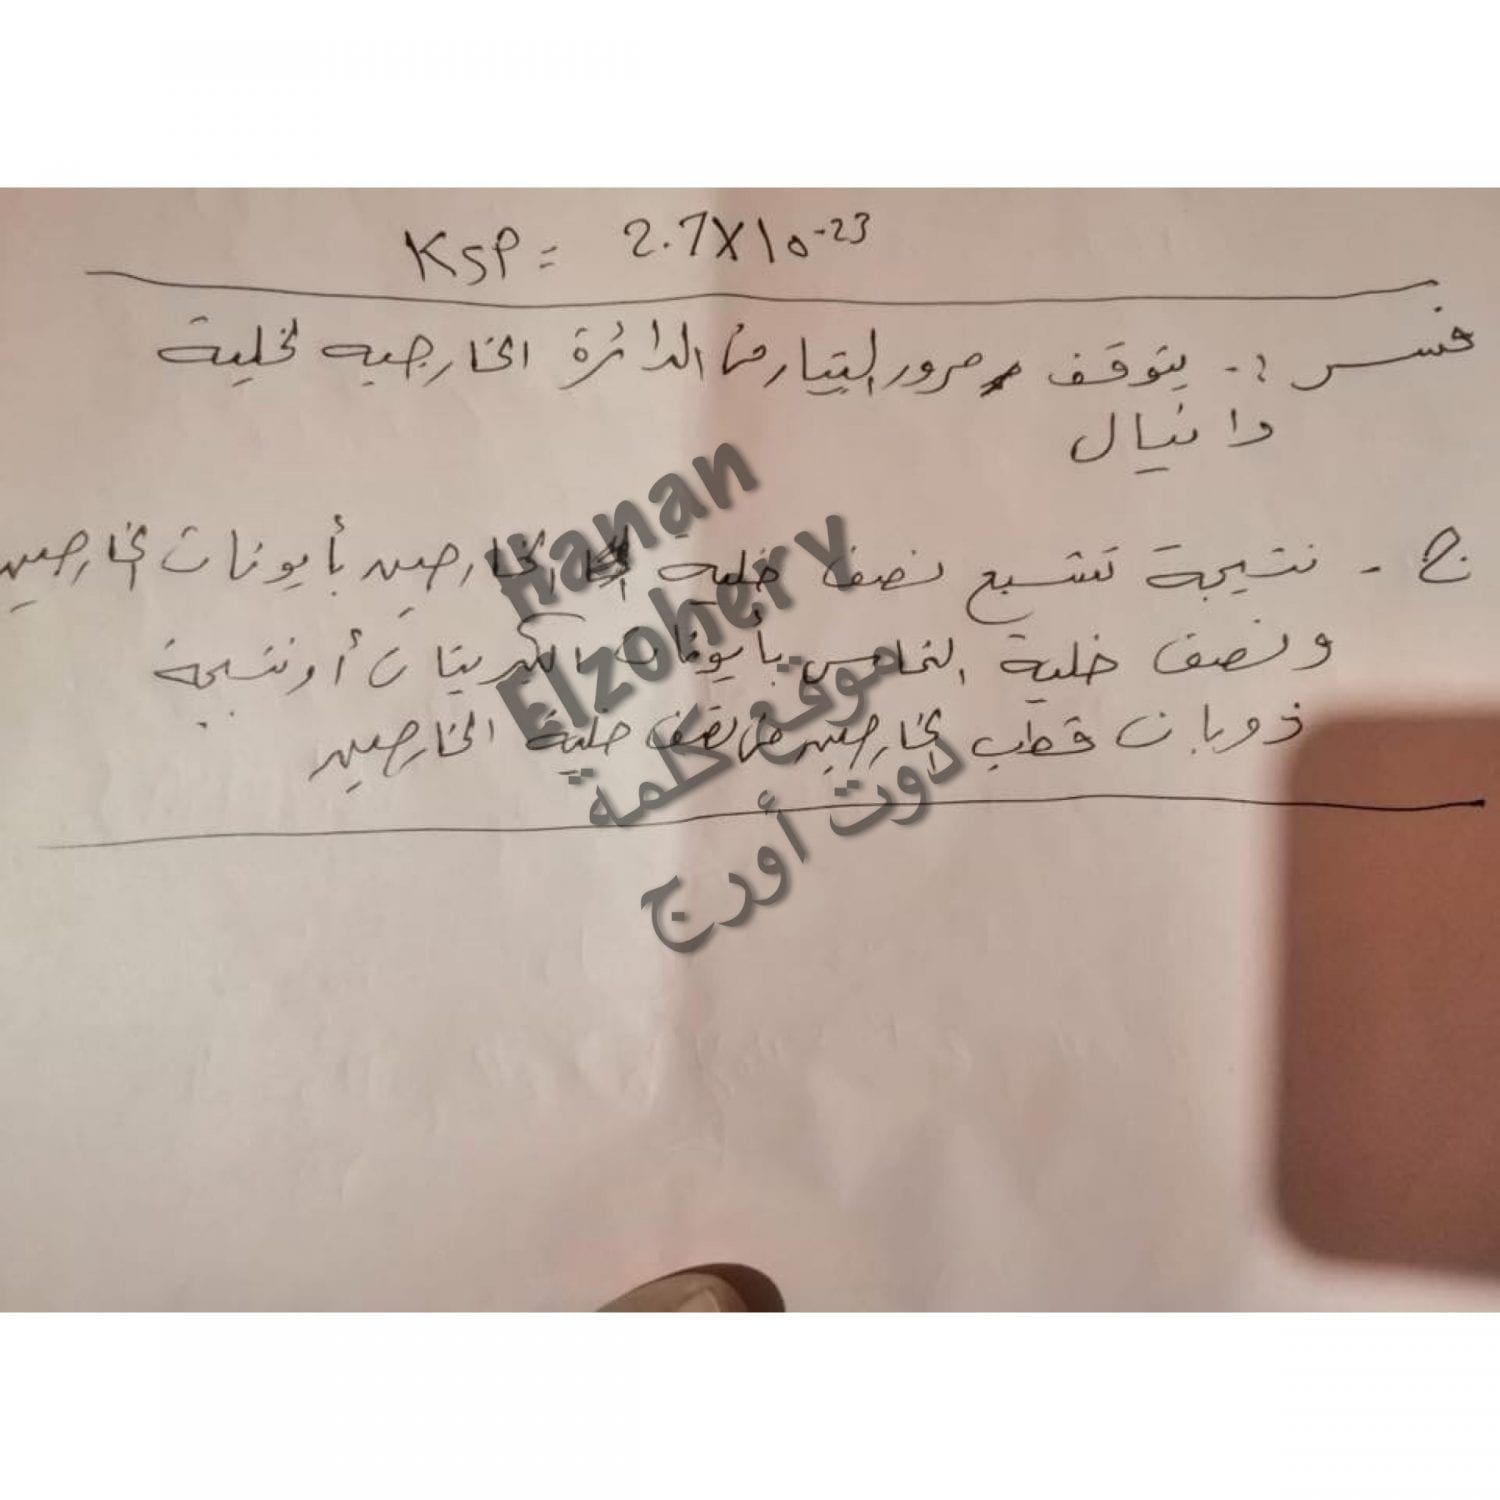 KSP = 2.7X10-23
فسر :- يتوقف مرور التيار من الدائرة الخارجيه لخلية
دانيال
ج - نتيجة تشبع نصف خلية الخارصين بأيونات الخارصين
ونصف خلية النحاس بأيونات الكبريتات أو نتيجة
ذوبان قطب الخارصين من نصف خلية الخارصين
Hanan
Elzohery
موقع كلمة
دوت أورج